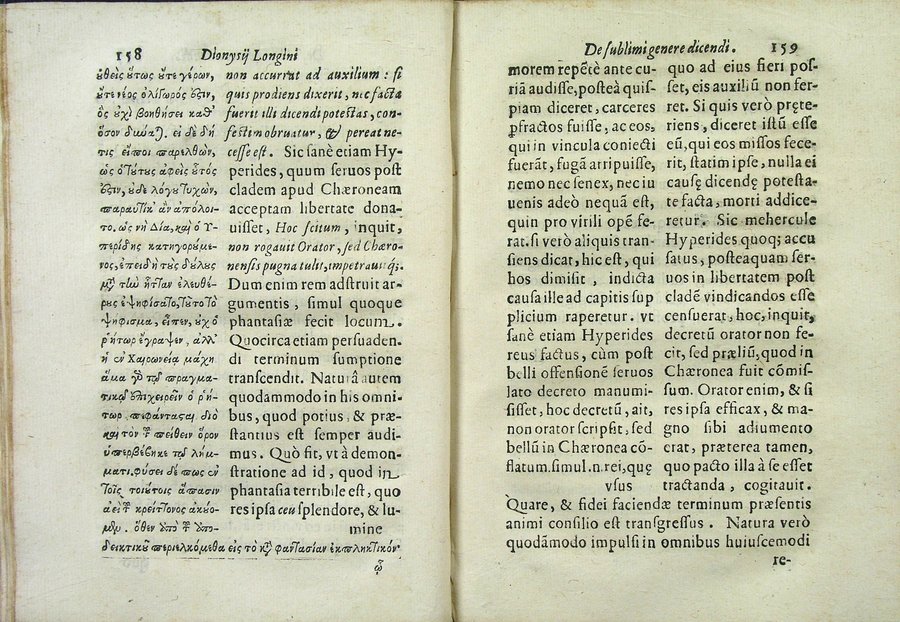 158 Dionysij Longini
οὐθεὶς οὕτως οὔτε γέρων,
οὔτε νέος ὀλίγωρός ἐστιν,
ὃς οὐχὶ βοηθήσει καθ'
ὅσον δύναται. εἰ δὲ δή
τις εἴποι παρελθὼν,
ὡς ὁ τούτους ἀφεὶς οὗτός
ἐστιν, οὐδὲ λόγου τυχὼν,
παραυτίκ' ἂν ἀπόλοι-
το. ὡς νὴ Δία, καὶ ὁ Ὑ-
περίδης κατηγορούμε-
νος, ἐπειδὴ τοὺς δούλους
μετὰ τὴν ἧτταν ἐλευθέ-
ρους ἐψηφίσατο, τοῦτο τὸ
ψήφισμα, εἶπεν, οὐχ ὁ
ῥήτωρ ἔγραψεν, ἀλλ'
ἡ ἐν Χαιρωνείᾳ μάχη
ἅμα γὰρ τῷ πραγμα-
τικῶς ἐπιχειρεῖν ὁ ῥή-
τωρ πεφάντασται, διὸ
καὶ τὸν τοῦ πείθειν ὅρον
ὑπερβέβηκε τῷ λήμ-
ματι. φύσει δέ πως ἐν
τοῖς τοιούτοις ἅπασιν
ἀεὶ τοῦ κρείττονος ἀκούο-
μεν. ὅθεν ἀπὸ τοῦ ἀπο-
δεικτικοῦ περιελκόμεθα εἰς τὸ κατὰ φαντασίαν ἐκπληκτικόν·
ᾧ
non accurrat ad auxilium: si
quis prodiens dixerit, nec facta
fuerit illi dicendi potestas, con-
festim obruatur, & pereat ne-
cesse est. Sic sanè etiam Hy-
perides, quum seruos post
cladem apud Chæroneam
acceptam libertate dona-
uisset, Hoc scitum, inquit,
non rogauit Orator, sed Chæro-
nensis pugna tulit, impetrauitq́;.
Dum enim rem adstruit ar-
gumentis, simul quoque
phantasiæ fecit locum.
Quocirca etiam persuaden-
di terminum sumptione
transcendit. Natura autem
quodammodo in his omni-
bus, quod potius, & præ-
stantius est semper audi-
mus. Quo fit, vt à demon-
stratione ad id, quod in
phantasia terribile est, quo
res ipsa ceu splendore, & lu-
mine
De sublimi genere dicendi. 159
morem repẽtè ante cu-
riã audisse, posteà quis-
piam diceret, carceres
ꝑfractos fuisse, ac eos,
qui in vincula coniecti
fuerãt, fugã arripuisse,
nemo nec senex, nec iu
uenis adeò nequã est,
quin pro virili opẽ fe-
rat. si verò aliquis tran-
siens dicat, hic est, qui
hos dimisit, indicta
causa ille ad capitis sup
plicium raperetur. vt
sanè etiam Hyperides
reus factus, cùm post
belli offensionẽ seruos
lato decreto manumi-
sisset, hoc decretũ, ait,
non orator scripsit, sed
bellũ in Chæronea cõ-
flatum. simul .n. rei, quę
vsus
quo ad eius fieri pos-
set, eis auxiliũ non fer-
ret. Si quis verò pręte-
riens, diceret istũ esse
eũ, qui eos missos fece-
rit, statim ipse, nulla ei
causę dicendę potesta-
te facta, morti addice-
retur. Sic mehercule
Hyperides quoq; accu
satus, posteaquam ser-
uos in libertatem post
cladẽ vindicandos esse
censuerat, hoc, inquit,
decretũ orator non fe-
cit, sed præliũ, quod in
Chæronea fuit cõmis-
sum. Orator enim, & si
res ipsa efficax, & ma-
gno sibi adiumento
erat, præterea tamen,
quo pacto illa à se esset
tractanda, cogitauit.
Quare, & fidei faciendæ terminum præsentis
animi consilio est transgressus. Natura verò
quodãmodo impulsi in omnibus huiuscemodi
re-